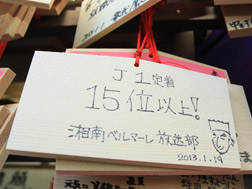 J1定着
15位以上!
湘南ベルマーレ 放送部
2013.1.19